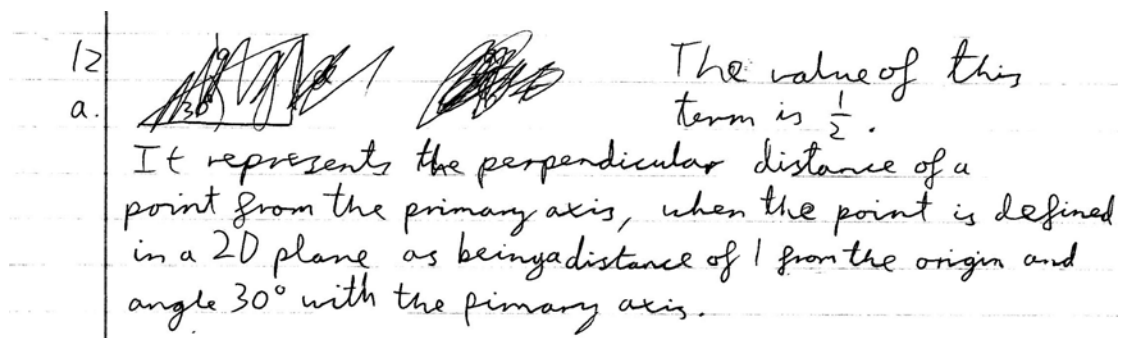 12
a.
The value of this
term is 1/2.
It represents the perpendicular distance of a
point from the primary axis, when the point is defined
in a 2D plane as being a distance of 1 from the origin and
angle 30° with the pimary axis.